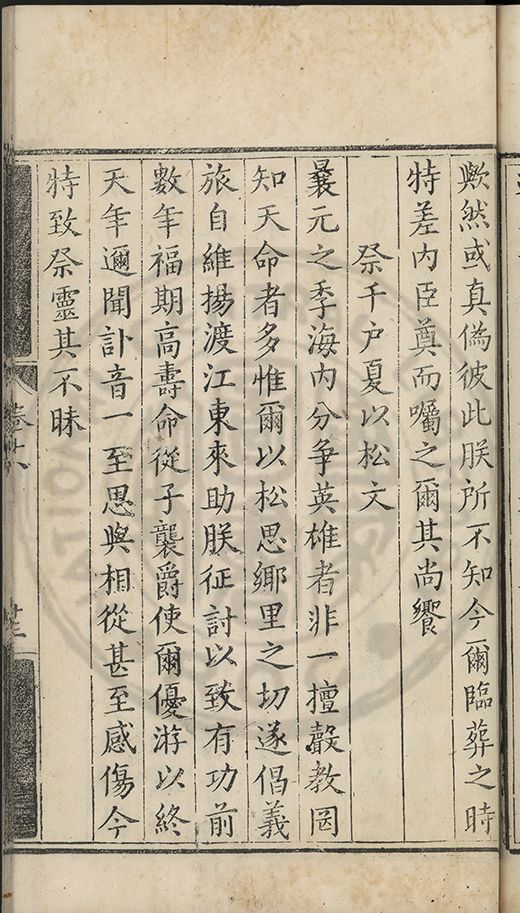 歟然或真偽彼此朕所不知今爾臨葬之時
特差内臣奠而囑之爾其尚饗
祭千户夏以松文
曩元之季海内分争英雄者非一擅聲教罔
知天命者多惟爾以松思鄉里之切遂倡義
旅自維揚渡江東來助朕征討以致有功前
數年福期高壽命從子襲爵使爾優游以終
天年邇聞訃音一至思與相從甚至感傷今
特致祭靈其不昧